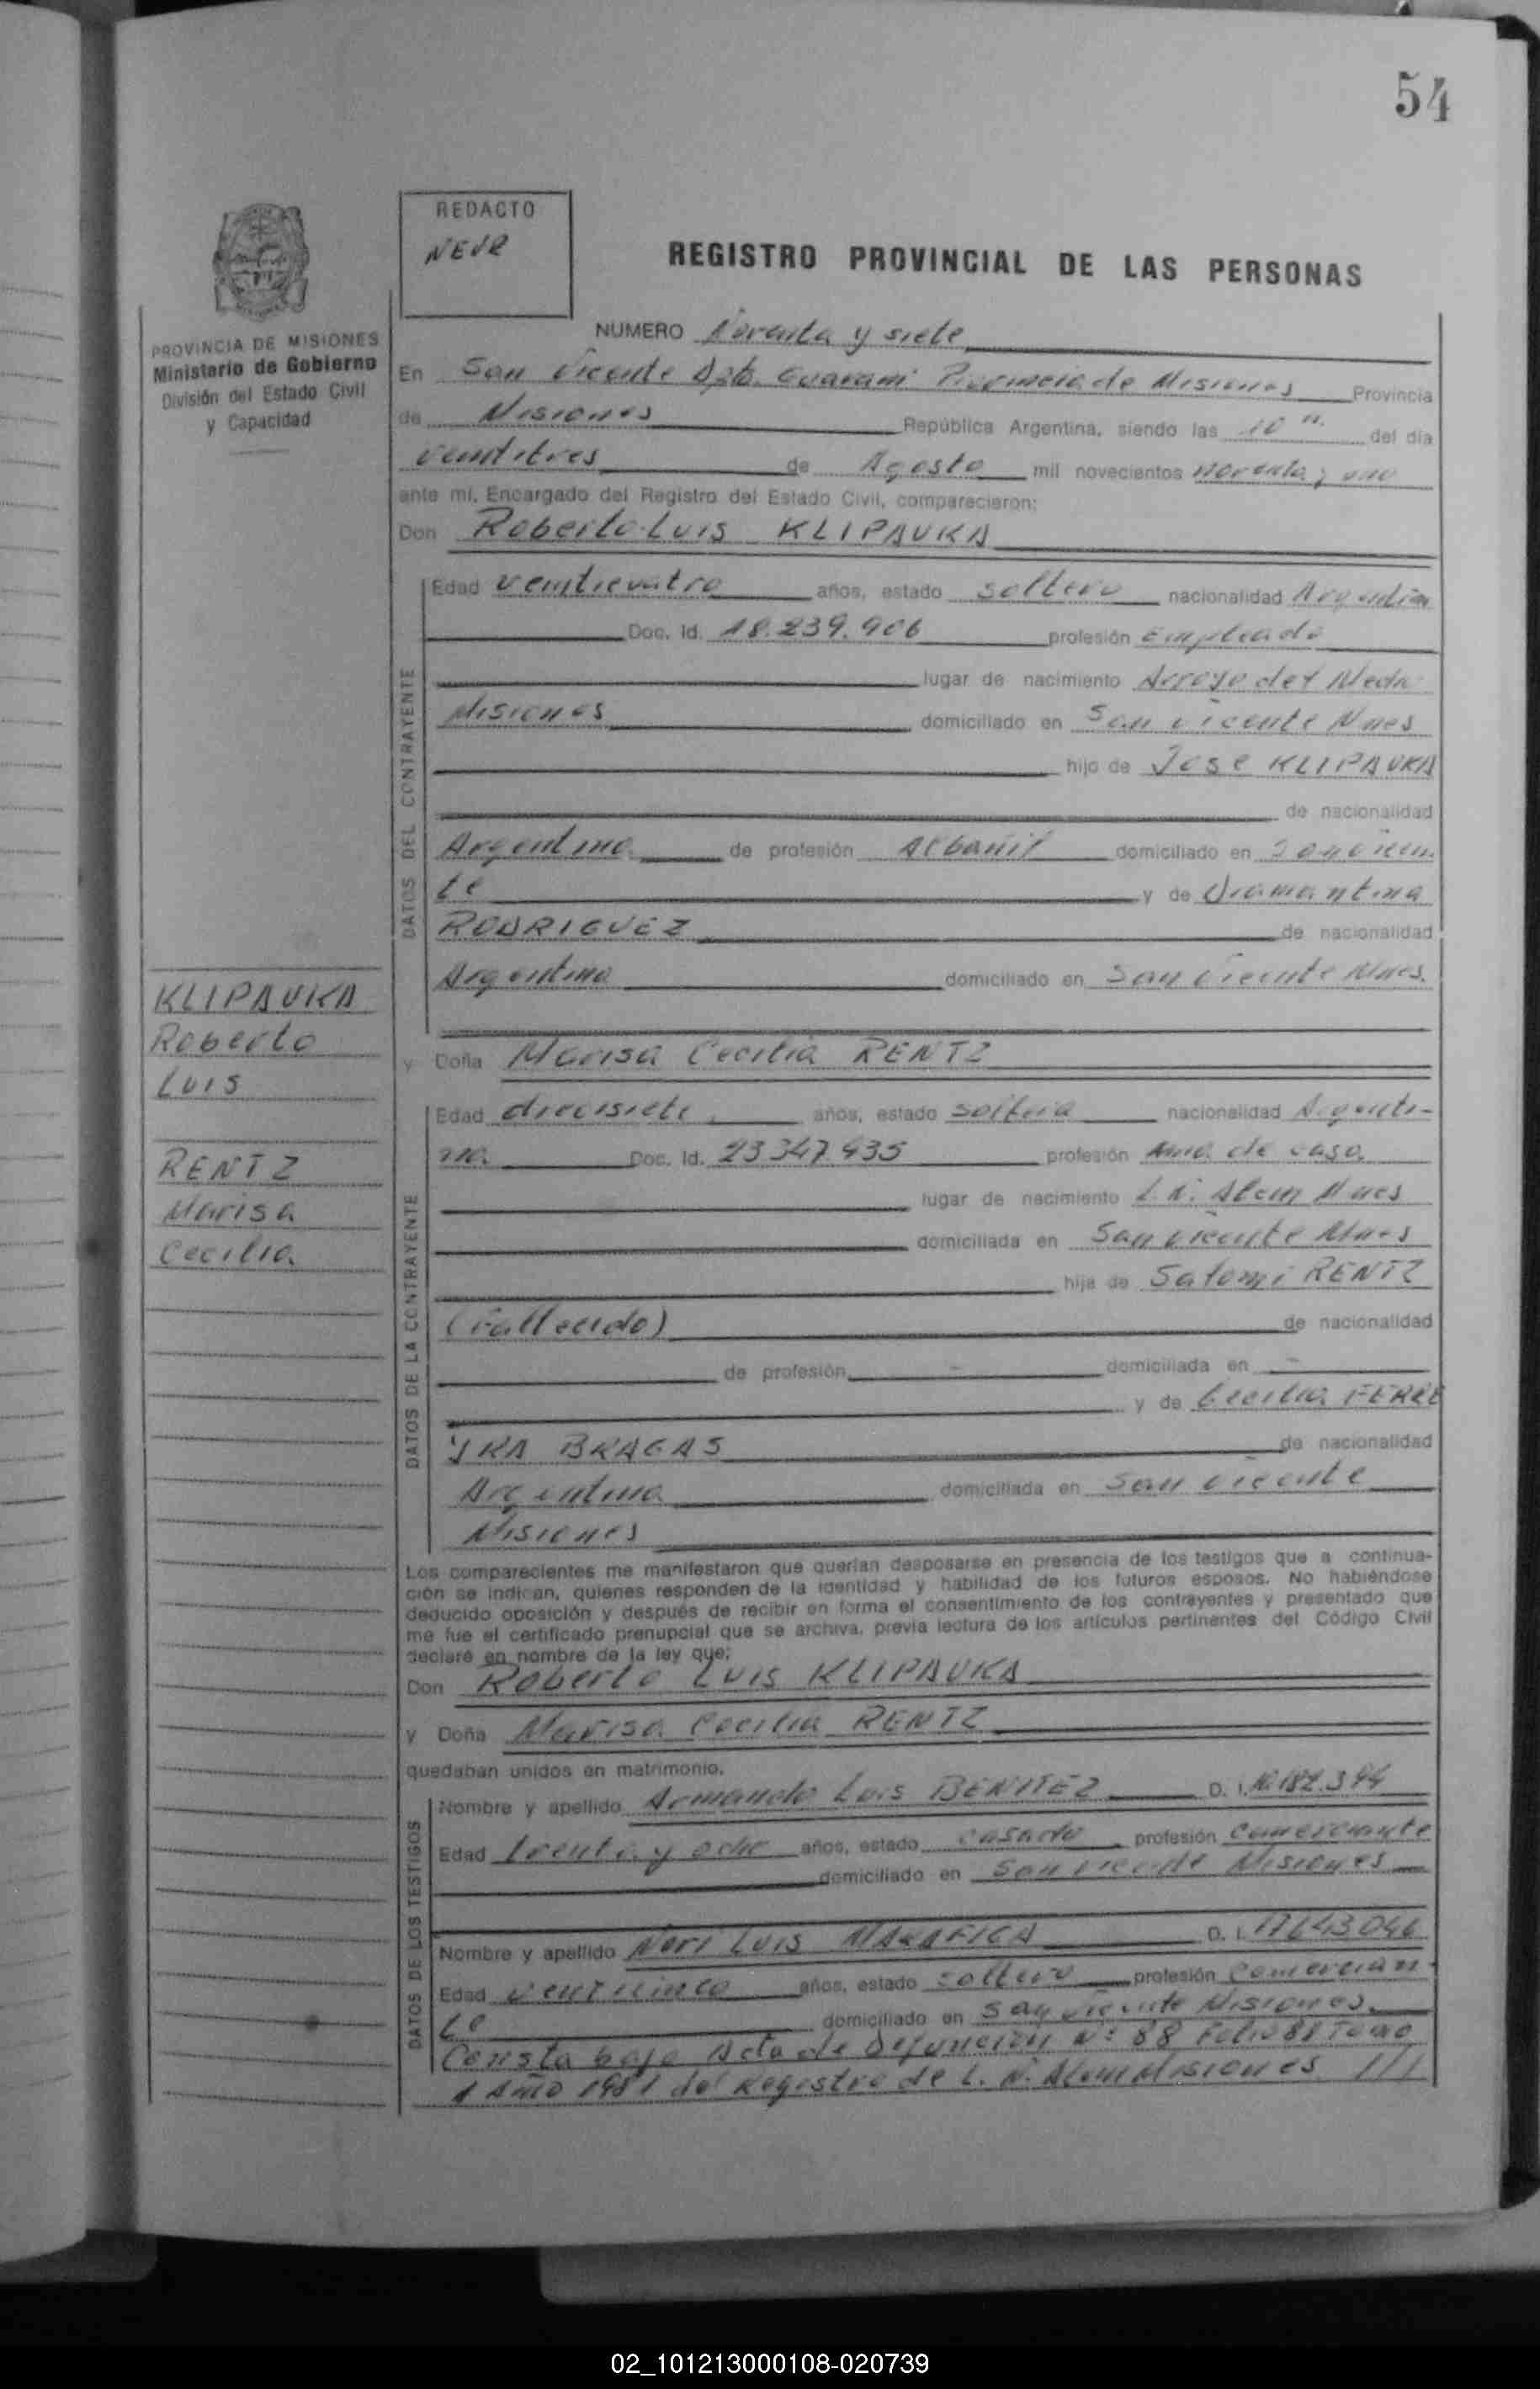 54
REDACTO
NEVR
REGISTRO PROVINCIAL DE LAS PERSONAS
PROVINCIA DE MISIONES
Ministerio de Gobierno
División del Estado Civil
y Capacidad
NUMERO Noventa y siete
En San Vicente Dpto. Guarani Provincia de Misiones Provincia
de Misiones República Argentina, siendo las 10 del día
veintitres de Agosto mil novecientos noventa y uno
ante mí, Encargado del Registro del Estado Civil, comparecieron:
Don Roberto Luis KLIPAUKA
DATOS DEL CONTRAYENTE
Edad veinticuatro años, estado soltero nacionalidad Argentina
Doc. Id. 18.239.906 profesión Empleado
lugar de nacimiento Arroyo del Medio
Misiones domiciliado en San Vicente Mnes
hijo de Jose KLIPAUKA
de nacionalidad
Argentina de profesión Albañil domiciliado en San Vicen
te y de Diamantina
RODRIGUEZ de nacionalidad
Argentina domiciliado en San Vicente Mnes.
KLIPAUKA
Roberto
Luis
RENTZ
Marisa
Cecilia
y Doña Marisa Cecilia RENTZ
DATOS DE LA CONTRAYENTE
Edad diecisiete años, estado soltera nacionalidad Argenti-
na Doc. Id. 23347435 profesión Ama de casa
lugar de nacimiento L.N. Alem Mnes
domiciliada en San Vicente Mnes
hija de Satomi RENTZ
(Fallecido) de nacionalidad
de profesión - domiciliada en -
y de Cecilia FERRE
YRA BRAGAS de nacionalidad
Argentina domiciliada en San Vicente
Misiones
Los comparecientes me manifestaron que querían desposarse en presencia de los testigos que a continua-
ción se indican, quienes responden de la identidad y habilidad de los futuros esposos. No habiéndose
deducido oposición y después de recibir en forma el consentimiento de los contrayentes y presentado que
me fue el certificado prenupcial que se archiva, previa lectura de los artículos pertinentes del Código Civil
declaré en nombre de la ley que:
Don Roberto Luis KLIPAUKA
y Doña Marisa Cecilia RENTZ
quedaban unidos en matrimonio.
DATOS DE LOS TESTIGOS
Nombre y apellido Armando Luis BENITEZ D. I. 10.182.344
Edad treinta y ocho años, estado casado profesión comerciante
domiciliado en San Vicente Misiones
Nombre y apellido Neri Luis D. I. 17643046
Edad veinticinco años, estado soltero profesión Comercian-
te domiciliado en San Vicente Misiones.
Consta bajo Acta de Defunción Nº 88 Folio 88 Tomo
1 Año 1981 del Registro de L. N. Alem Misiones ///
02_101213000108-020739